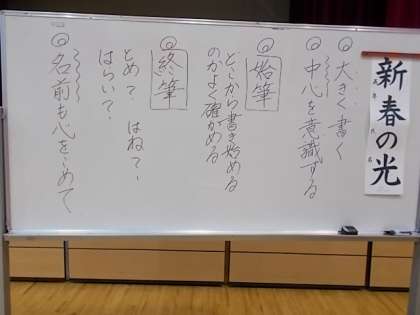 新春の光
◎大きく書く
◎中心を意識する
◎始筆
どこから書き始める
のかよく確かめる
◎終筆
とめ?はね?
はらい?
◎名前も心をこめて